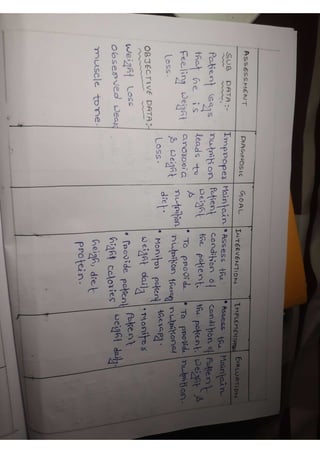 ASSESSMENT
SUB DATA:-
Patient says
that he is
Feeling weight
loss
OBJECTIVE DATA:-
Weight loss
Observed weak
muscle tone.
DIAGNOSIS
Improper
nutrition
leads to
anorexia
& weight
loss.
GOAL
Maintain
Patient
weight
&
nutrition
diet.
INTERVENTION
• Assess the
condition of
the patient.
• To provide
nutrition therapy
• Monitor patient
weight daily
• Provide patient
hight calories
heigh, diet
protein.
• Assess the
condition of
the patient
• To provide
nutritional
therapy.
• Monitor
Patient
weight daily
EVALUATION
Maintain
Patient
weight &
nutrition.